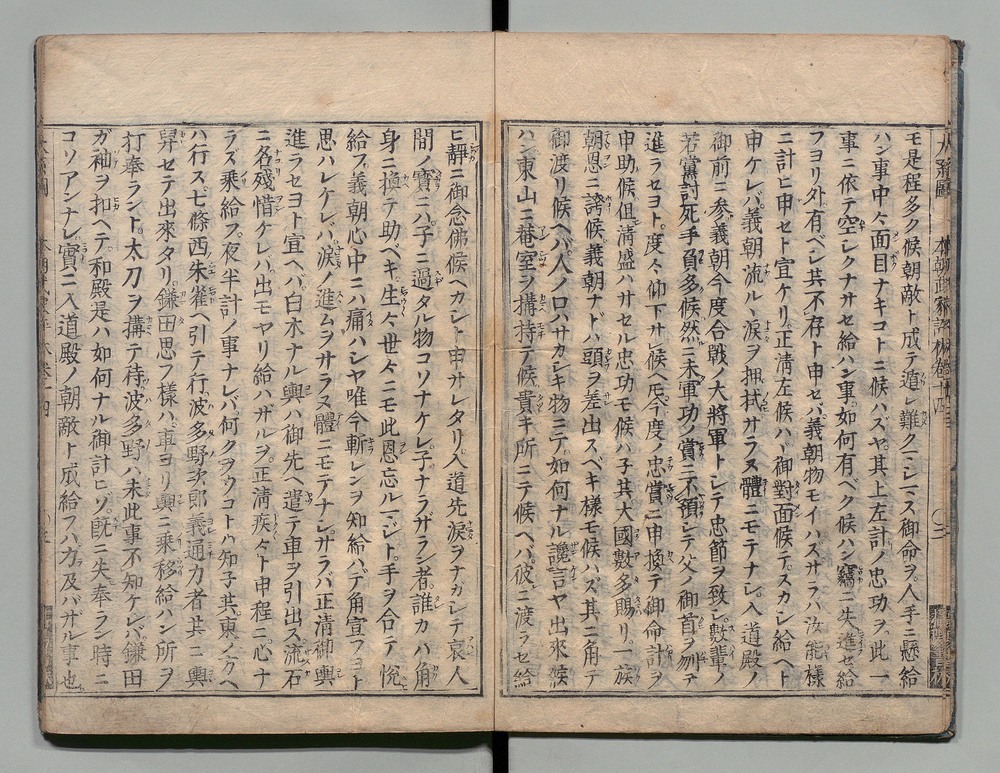 モ是程多ク候朝敵ト成テ遁レ難クマシマス御命ヲ人手ニ懸給
ハン事中々面目ナキコトニ候ハズヤ其上左計ノ忠功ヲ此一
事ニ依テ空シクナサセ給ハン事如何有ベク候ハン竊ニ失進セ給
フヨリ外有ベシ共不存ト申セバ義朝物モイハズサラバ汝能様
ニ計ヒ申セト宣ケリ正清左候ハヾ御對面候テスカシ給ヘト
申ケレバ義朝流ルヽ涙ヲ押拭サラヌ體ニモテナシ入道殿ノ
御前ニ参義朝今度合戰ノ大將軍トシテ忠節ヲ致シ數輩ノ
若黨討死手負多候然ニ未軍功ノ賞ニ不預シテ父ノ御首ヲ刎テ
進ラセヨト度々仰下サレ候ヘ共今度ノ忠賞ニ申換テ御命計ヲ
申助候但清盛ハサセル忠功モ候ハ子共大國數多賜リ一族
朝恩ニ誇候義朝ナドハ頭ヲ差出スベキ樣モ候ハズ其ニ角テ
御渡リ候ヘバ人ノ口ハサカシキ物ニテ如何ナル讒言ヤ出來候
ハン東山ニ菴室ヲ構持テ候貴キ所ニテ候ヘバ彼ニ渡ラセ給
ヒ靜ニ御念佛候ヘカシト申サレタリ入道先涙ヲナガシテ哀人
間ノ寶ニハ子ニ過タル物コソナケレ子ナラザラン者誰カハ角
身ニ換テ助ベキ生々世々ニモ此恩忘ルマジトテ手ヲ合テ悦
給フ義朝心中ニハ痛ハシヤ唯今斬レンヲ知給ハデ角宣フヨト
思ハレケレバ涙ノ進ムヲサラヌ體ニモテナシサラバ正清御輿
進ラセヨト宣ヘバ白木ナル輿ハ御先ヘ遣テ車ヲ引出ス流石
ニ名殘惜ケレバ出モヤリ給ハザルヲ正清疾々ト申程ニ心ナ
ラズ乘給フ夜半計ノ事ナレバ何クヲウコトハ知子共東ノ方ヘ
ハ行ズ七條西朱雀ヘ引テ行波多野次郎義通力者共ニ輿
舁セテ出來タリ鎌田思フ樣ハ車ヨリ輿ニ乘移給ハン所ヲ
打奉ラントテ太刀ヲ搆テ待波多野ハ未此事不知ケレバ鎌田
ガ袖ヲ扣ヘテ和殿是ハ如何ナル御計ヒゾ既ニ失奉ラン時ニ
コソアンナレ實ニ入道殿ノ朝敵ト成給フハ力及バザル事也